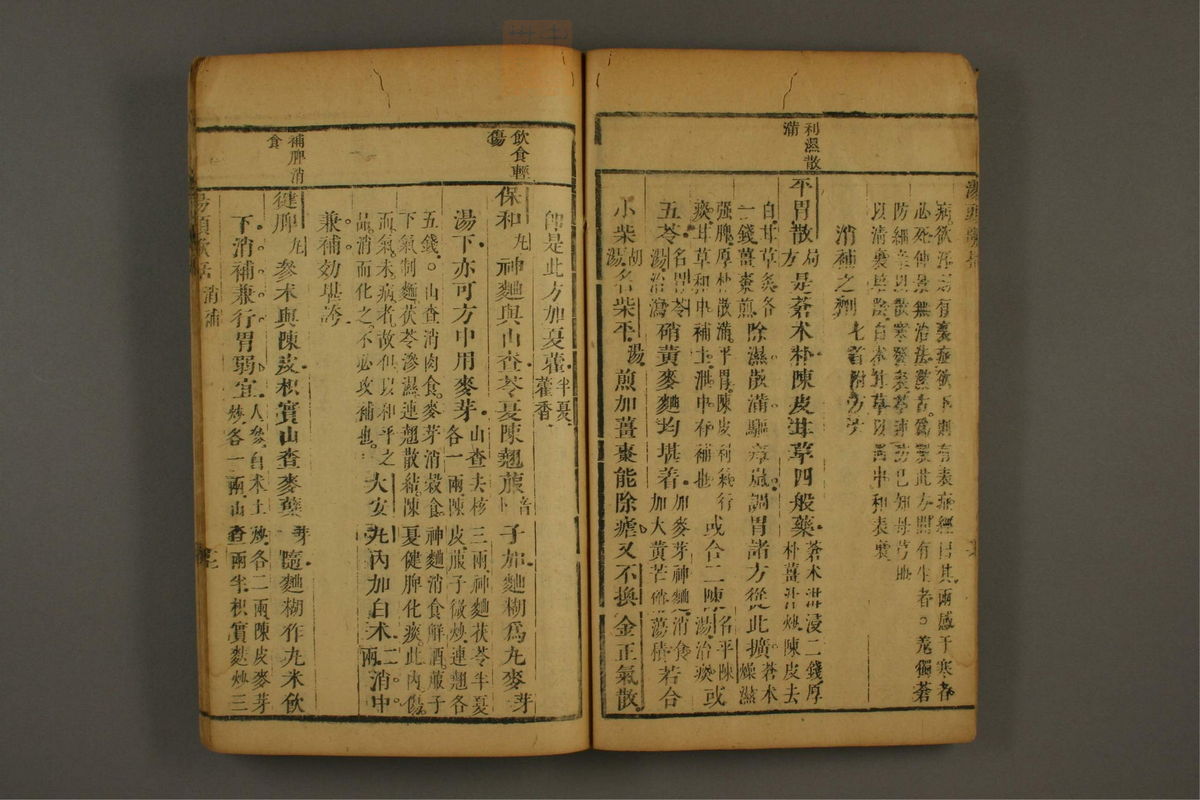 利濕散
滿
病欲汗則有裏症欲下則有表症經曰其兩感于寒者
必死仲景無治法潔古為製此方間有生者。羗獨蒼
防細辛以散寒發表
以清裏
白术甘草以固中和表裏
消補之劑
七首附方六
平胃散局方是蒼术朴陳皮甘草四般藥蒼术泔浸二錢厚朴薑汁炒陳皮去
白甘草炙各一錢薑棗煎除濕散滿驅瘴嵐調胃諸方從此擴蒼术燥濕
強脾厚朴散滿平胃陳皮利氣行痰甘草和中補土泄中有補也或合二陳名平陳湯治痰或
五苓名胃苓湯治瀉硝黃麥麯均堪着加麥芽神麯消食加大黃芒硝蕩積若合
小柴胡湯名柴平湯煎加薑棗能除瘧又不換金正氣散
飲食輕
傷
補脾消
食
即是此方加夏藿半夏藿香
保和丸神麯與山查苓夏陳翹菔音卜子加麯糊為丸麥芽
湯下亦可方中用麥芽山查去核三兩神麯茯苓半夏各一兩陳皮菔子微炒連翹各
五錢。山查消肉食麥芽消穀食神麯消食解酒菔子下氣制麵茯苓滲濕連翹散結陳夏健脾化痰此內傷
而氣未病者故但以和平之品消而化之不必攻補也大安丸內加白术二兩消中
兼補効堪誇
健脾丸參术與陳皮枳實山查麥蘗芽隨麯糊作丸米飲
下消補兼行胃弱宜人參白术土炒各二兩陳皮麥芽炒各一兩山查兩半枳實麩炒三
湯頭歌訣
消補